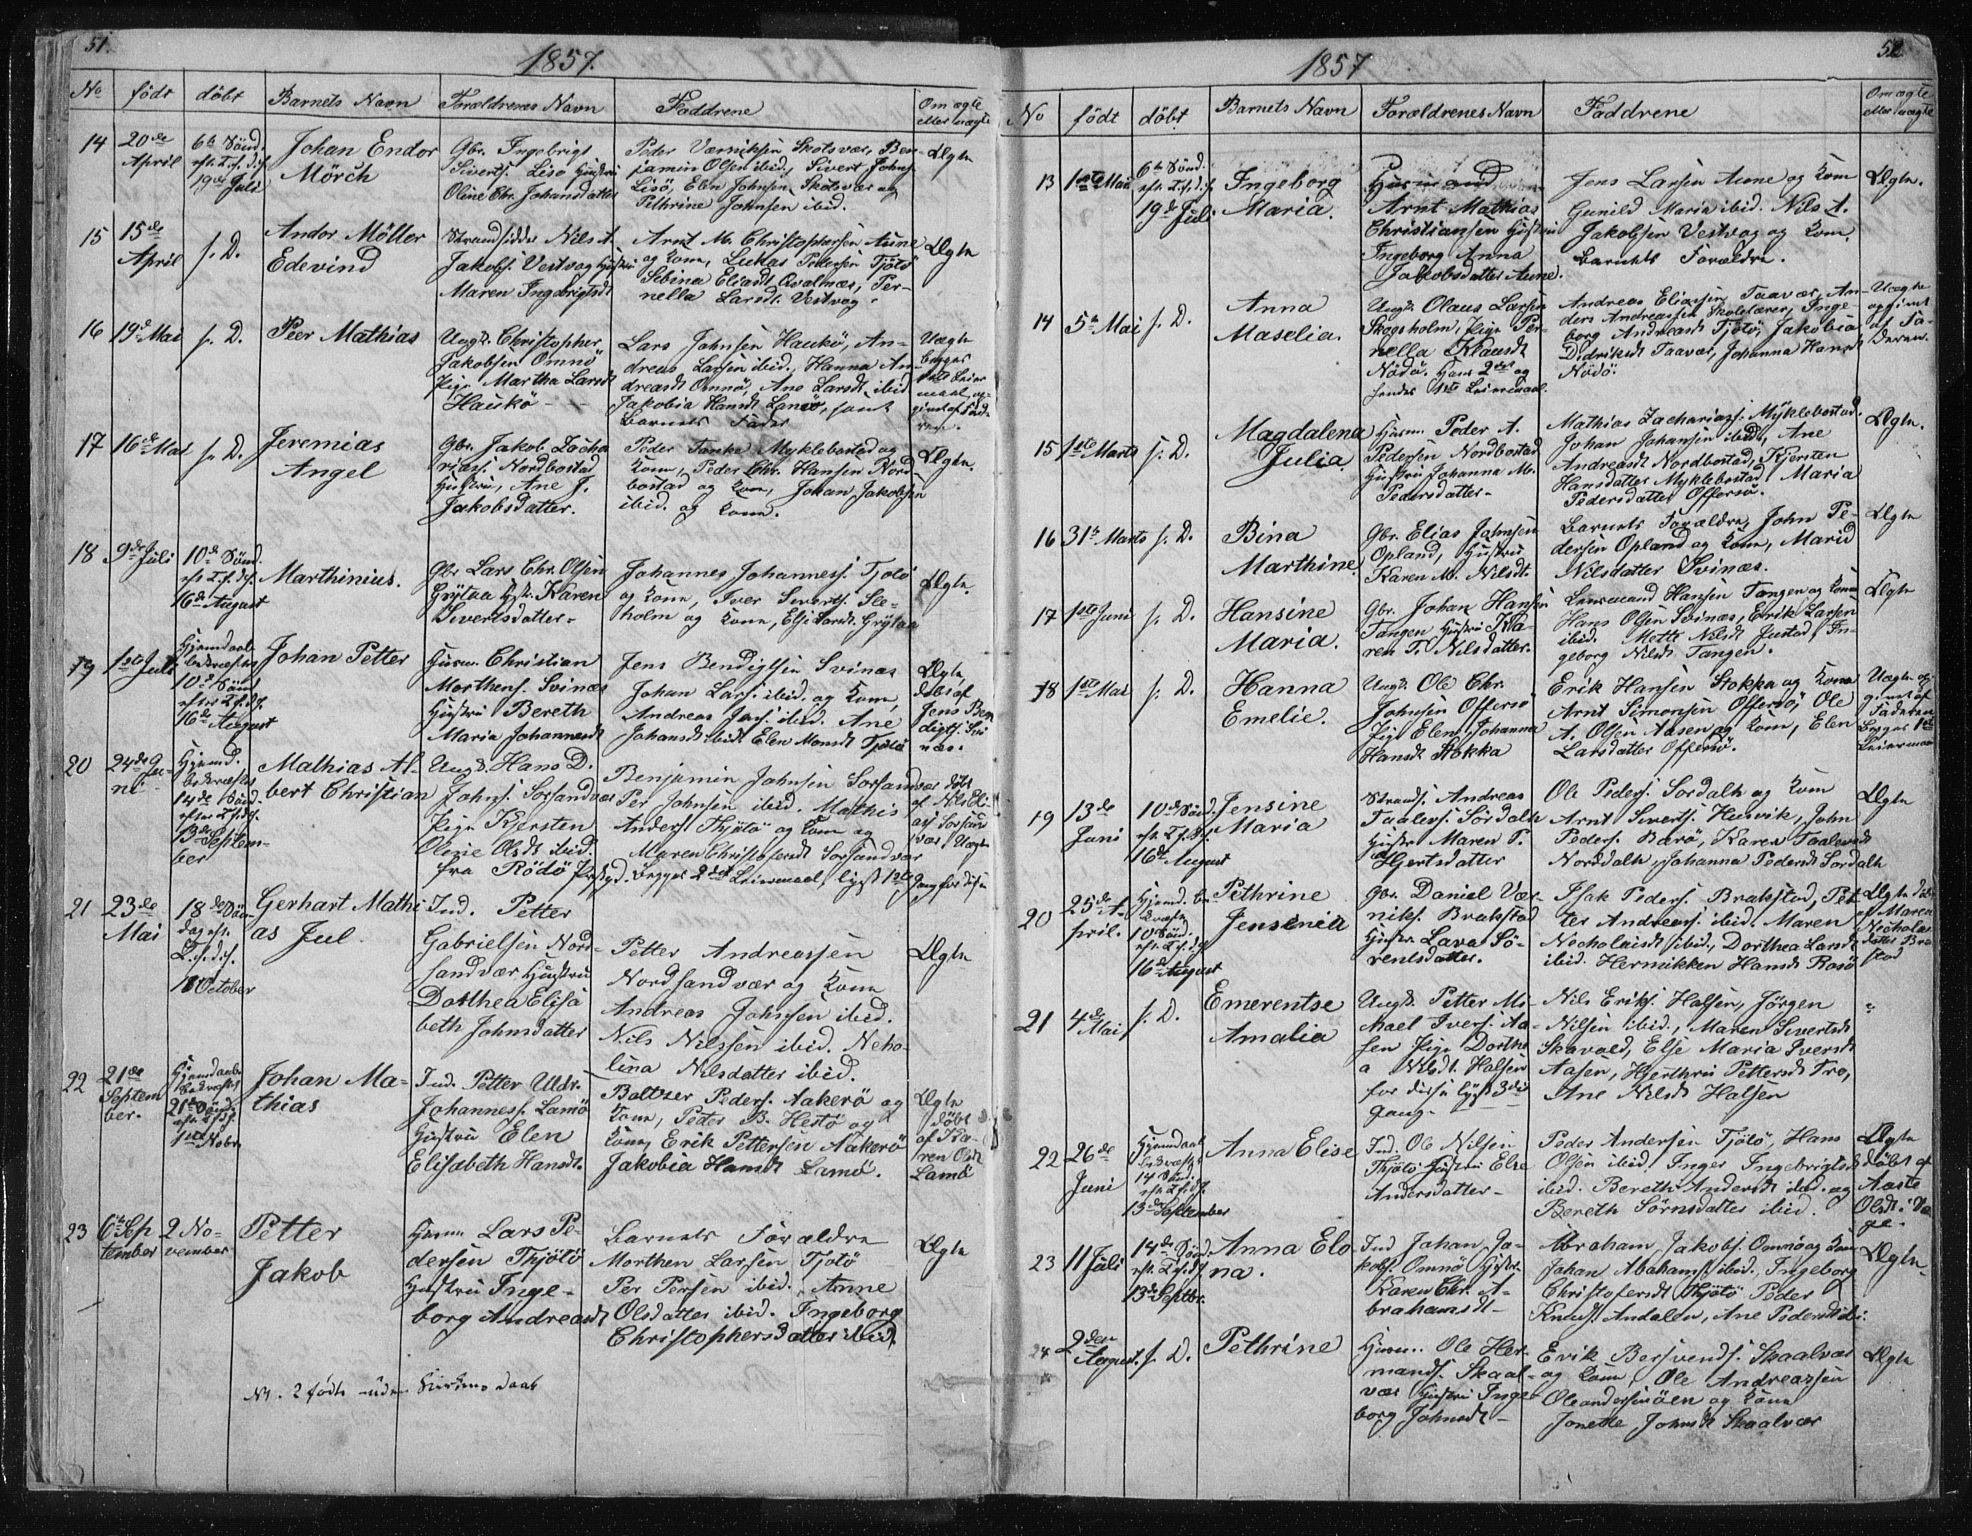 51.
1857.
No
födt
döbt
Barnets Navn
Forældrenes Navn
Faddrene
Om ægte
eller uægte
14
20de
April
6te Sönd.
eft. T. f. d. f.
19de Juli
Johan Endor
Mörch
Gbr. Ingebrigt
Sivertf. Lisö Hustru
Oline Chr. Johansdatter
Peder Værniksen Skotsvær, Ben-
jamin Olsen ibid., Sivert Johnf.
Lisö, Elen Johnsen Skotsvær og
Pethrine Johnsen ibid.
Ægte
15
15de
April
f. D.
Andor Möller
Edevind
Strandsidder Nils A.
Jakobf. Vestvog Hustru
Maren Ingebrigtsdt
Arnt M. Christophersen Aune
og Kone, Lukas Pedersen Tjötö
Sebina Eliasdt Qvalnæs, Per-
nella Larsdt. Vestvog.
Ægte
16
19de Mai
f. D.
Peer Mathias
Ungk. Christopher
Jakobsen Omnö
Pige Martha Larsdt
Hauskö
Lars Johnsen Haukö, An-
dreas Larsen ibid., Hanna An-
dreasdt Omnö, Ane Larsdt. ibid
Jakobia Hansdt Lamö, samt
Barnets Fader
Uægte
begges
1ste Leier
maal, op-
givet af Fade-
ren.
17
16de Mai
f. D.
Jeremias
Angel
Gbr. Jakob Zacha
riasf. Nordbostad
Hustru, Ane J.
Jakobsdatter.
Peder Myklebostad og
Kone, Peder Chr. Hansen Nord
bostad og Kone, Johan Jakobsen
ibid. og Kone.
Ægte.
18
9de Juli
10de Sönd.
eft. T. f. d. f.
16de August
Marthinius.
Gbr Lars Chr. Olsen
Grytaa Hst. Karen
Sivertsdatter.
Johannes Johannesf. Tjötö
og Kone, Iver Sivertf. Sle-
holm og Kone, Grytaa
Ægte.
19
1ste Juli
Hjemdaab
bekræftet
10de Sönd
efter T. f. d. f.
16de August
Johan Petter
Husm. Christian
Morthenf. Svinæs
Hustru Bereth
Maria Johannesdt
Jens Bendigtsen Svinæs
Johan Larsf. ibid. og Kone,
Andreas ibid. Ane
Johansdt ibid. Elen Monsdt Tjötö
Ægte,
döbt af
Jens Ben
digtf. Svi
næs.
20
24de Ju-
ni
Hjemd.
bekræftet
14de Sönd.
efter T. f. d. f.
13de Septem-
ber
Mathias Al-
bert Christian
Ungk. Hans D.
Johnf. Sorsandvær
Pige Kjersten
Oline Olsdt ibid.
fra Rödö Præstgjd. begges 2det Leiermaal, lyst 1ste Gang for disse
Benjamin Johnsen Sorsandvær
Per Johnsen ibid. Mathis
Andersf. Thjötö og Kone og
Maren Christofersdt Sorsandvær
döbt
af Nils Eli-
asf Sorsand
vær Uægte
21
23de
Mai
18de Sön-
dag eft.
T. f. d. f.
18 October
Gerhart Mathi
as Jul.
Ind. Petter
Gabrielsen Nord-
sandvær Hustru
Dorthea Elisa
beth Johnsdatter
Petter Andreassen
Nordsandvær og Kone
Andreas Johnsen ibid.
Nils Nilssen ibid. Neko-
lina Nilsdatter ibid.
Ægte
22
21de
Septem
ber.
Hjemdaab
bekræftet
21de Sönd.
eft. T. f. d. f.
1ste Nobr.
Johan Ma-
thias
Ind. Petter Uldr.
Johannesf. Lamö
Hustru Elen
Elisabeth Hansdt.
Baltzer Pedersf. Aakerö og
Kone, Peder B. Hestö og
Kone, Erik Pettersen Aakerö
Jakobia Hansdt Lamö.
Ægte
döbt
af Ka-
ren Olsdt
Lamö
23
6te Sep
tember
2 No-
vember
Petter
Jakob
Husm. Lars Pe-
dersen Thjötö
Hustru Inge-
borg Andreasdt
Barnets Forældre
Morthen Larsen Tjötö
Per Persen ibid. Anne
Olsdatter ibid. Ingeborg
Christophersdatter ibid.
Ægte
Nt. 2 födte uden Daab
52
1857
No
födt
döbt
Barnets Navn
Forældrenes Navn
Faddrene
Om ægte
eller uægte
13
1ste Mai
6te Sönd.
eft. T. f. d. f.
19de Juli
Ingeborg
Maria.
Husmand
Arnt Mathias
Christiansen Hustru
Ingeborg Anna
Jakobsdatter Aune.
Jens Larsen Aune og Kone
Gunild Maria ibid. Nils A.
Jakobsen Vestvog og Kone,
Barnets Forældre.
Ægte.
14
5te Mai
f. D.
Anna
Maselia.
Ungk. Olaus Larsen
Skogsholm, Pige Per-
nella Klausdt
Nödö. Hans 2det og
hendes 1ste Leiermaal.
Andreas Eliassen Taavær, An-
ders Andreasen Skolelærer, Inge-
borg Andreasdt Tjötö, Jakobia
Didriksdt Taavær, Johanna Hansdt
Nödö.
Uægte
opgivet
af Fa-
deren.
15
1ste Marts
f. D.
Magdalena
Julia
Husm. Peder A.
Pedersen Nordbostad
Hustru Johanna M.
Pedersdatter
Mathias Zachariasf. Myklebostad.
Johan Johansen ibid., Ane
Andreasdt Nordbostad, Kjersten
Hansdatter Myklebostad, Maria
Pedersdatter Offersö.
Ægte.
16
31te Marts
f. D.
Bina
Marthine.
Gbr. Elias Johnsen
Opland, Hustru
Karen M. Nilsdt.
Barnets Forældre, John Pe-
dersen Opland og Kone, Maria
Nilsdatter Svinæs.
Ægte
17
1ste Juni
f. D.
Hansine
Maria.
Gbr. Johan Hansen
Tangen Hustru Ma-
ren T. Nilsdatter.
Lensmand Hansen Tangen og Kone
Hans Olsen Svinæs, Erik Larsen
ibid. Mette Nilsdt Justad, In-
geborg Nilsdt Tangen.
Ægte
18
1ste Mai
f. D.
Hanna
Emelie.
Ungk. Ole Chr.
Johnsen Offersö
Pige Elen Johanna
Hansdt Stokka
Erik Hansen Stokka og Kone
Arnt Simonsen Offersö, Ole
A. Olsen Aasen og Kone, Elen
Larsdatter Offersö.
Uægte op
givet af
Faderen
Begges 1ste
Leiermaal
19
13de
Juni
10de Sönd.
eft. T. f. d. f.
16de August
Jensine
Maria
Strandf. Andreas
Taalersf. Sördalh
Hustru Maren P.
Hjertsdatter
Ole Pedersf. Sordalh og Kone
Arnt Sivertf. Husvik, John
Pedersf. Barö, Karen Taalersdt
Norddalh, Johanna Pedersdt Sordalh
Ægte
20
25de A-
pril.
Hjemd. be
kræft.
10 Sönd.
eft. T. f. d. f.
16de August
Pethrine
Jensenia
Gbr. Daniel Vær-
nikf. Brakstad
Hustru Lava Sö-
rentsdatter.
Isak Pedersf. Brakstad, Pet-
ter Andreasf. ibid. Maren
Necholaisdt ibid., Dorthea Larsdt
ibid. Hermikken Hansdt Rosö
Ægte döbt
af Maren
Necholai-
datter Brak
stad
21
4de
Mai
f. D.
Emerentse
Amalia
Ungk. Petter Mi-
kael Iversf. Aa-
sen Pige Dorthe
a Nilsdt. Halsen
for disse lyst 3die
Gang.
Nils Eriksf. Halsen, Jörgen
Nilsen ibid., Maren Sivertsdt
Skavold, Else Maria Iversdt
Aasen, Pettersdt Tro,
Ane Nilsdt Halsen
"
22
26de
Juni
Hjemdaab
bekræft.
14 Sönd.
eft. T. f. d. f.
13de September
Anna Elise
Ind. Ole Nilsen
Thjötö Hustru Else
Andersdatter
Peder Andersen Tjötö, Hans
Olsen ibid. Inger Ingebrigtsdt
ibid. Bereth Andersdt ibid. og
Bereth Sörnsdatter ibid.
Ægte
döbt af
Aaste
Olsdt. Va
ge.
23
11 Juli
14de Sönd.
eft. T. f. d. f.
13de Septbr.
Anna Elo-
na.
Ind Johan Ja-
kobf. Omnö Hustr.
Karen Chr. A-
brahamsdt
Abraham Jakobf. Omnö og Kone
Johan Abahamf ibid., Ingeborg
Christofersdt Thjötö Peder
Knudf. Andalen, Ane Pedersdt ibi.
Ægte
24
2den
August.
f. D.
Pethrine
Husm. Ole Her-
mandf. Skaal-
vær Hustru Inge
borg Johnsdt
Erik Bersvendf. Skaalvær
og Kone, Ole Andreassen
og Kone
Jonette Johnsdt Skaalvær
Ægte